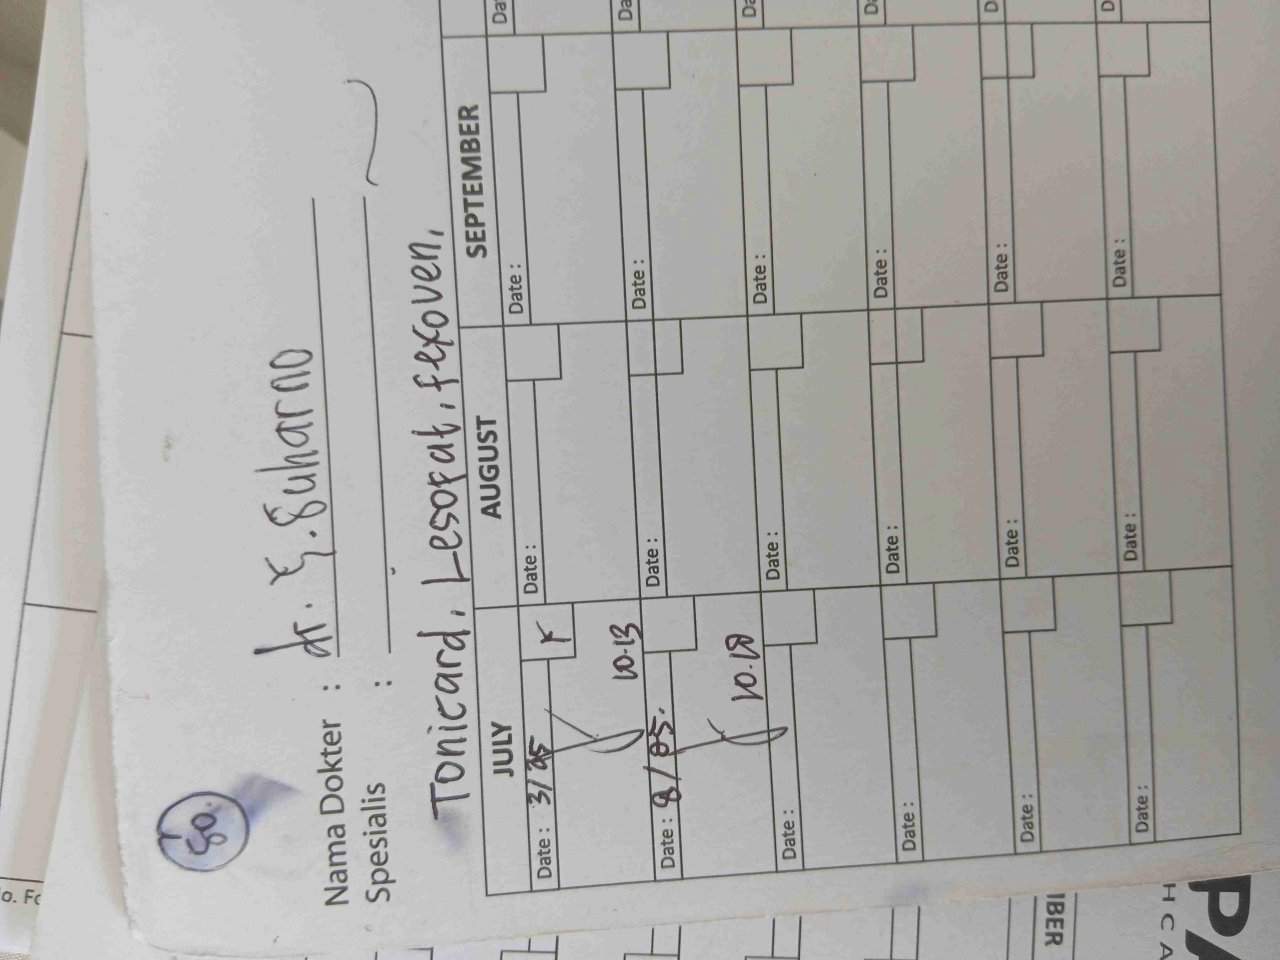 80.
Nama Dokter : dr. E. Suharno
Spesialis :
Tonicard, Lesofat, fexoven,
JULY AUGUST SEPTEMBER
Date : 3/25 Date : Date : Da
10.13
Date : 8/25. Date : Date : Da
10.18
Date : Date : Date : Da
Date : Date : Date : Da
Date : Date : Date : D
Date : Date : Date : D
o. Fo
IBER
PA
H C A